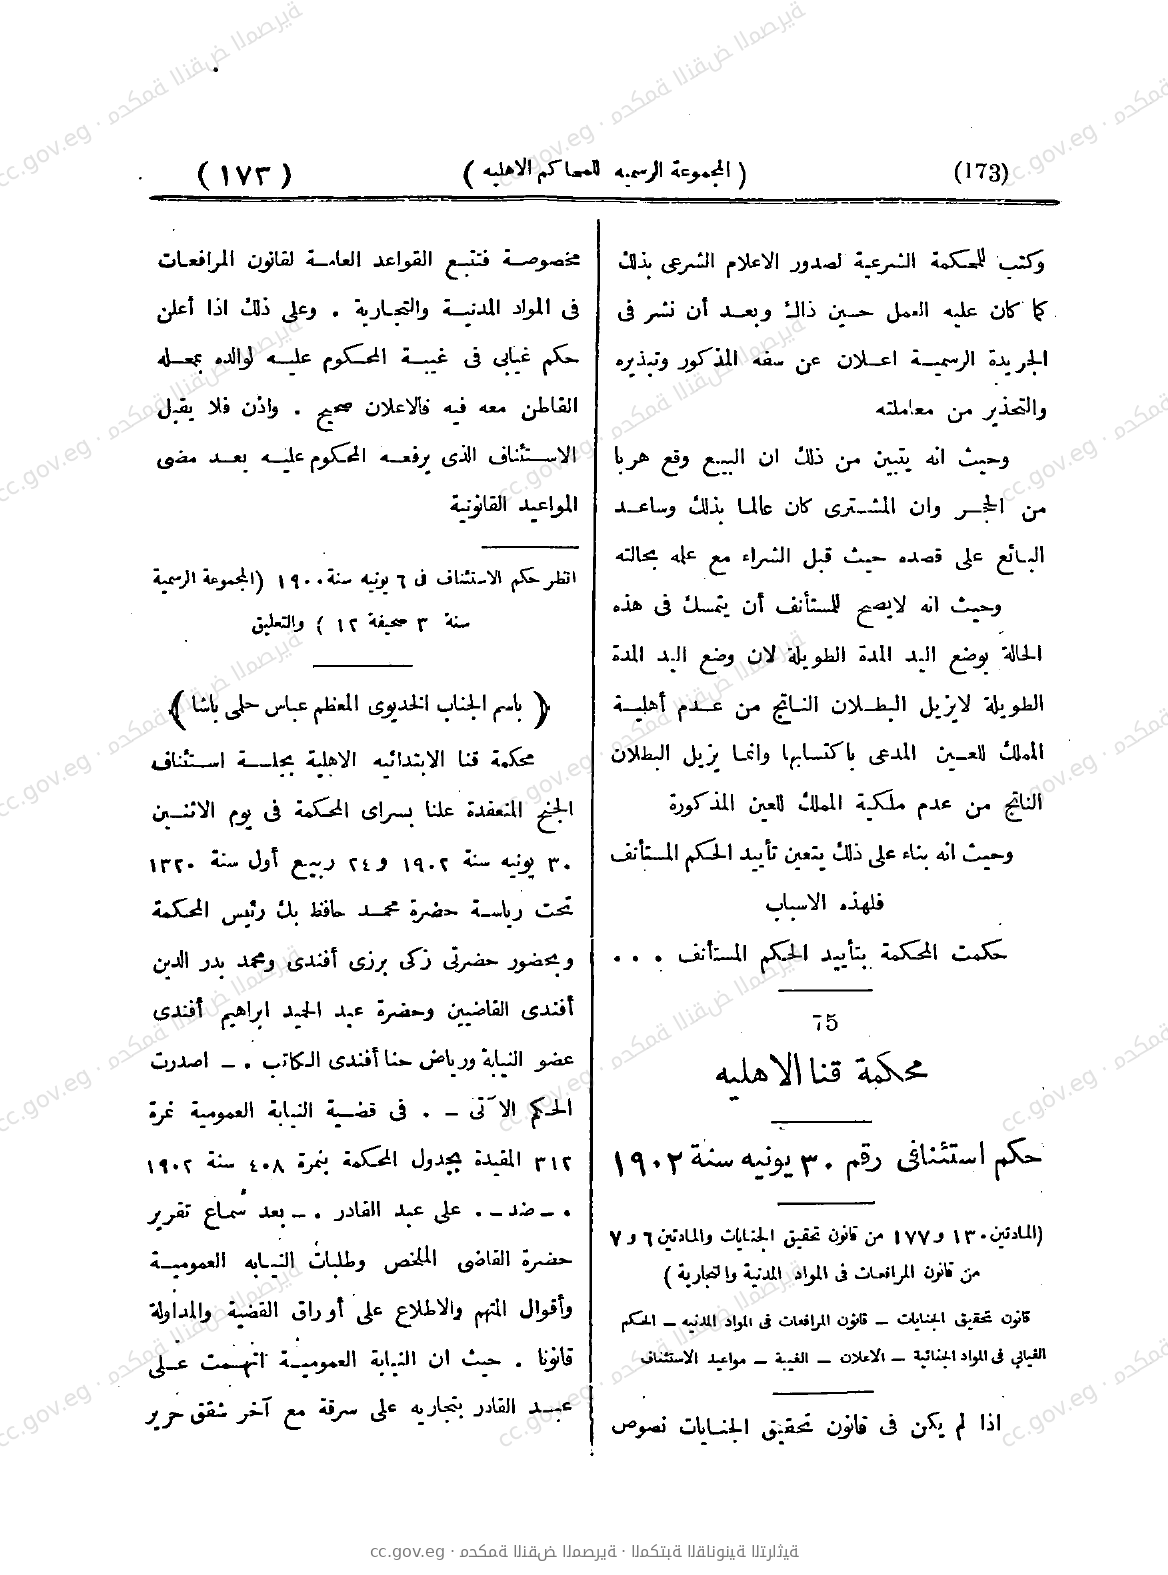 (173) ( المجموعة الرسميه للمحاكم الاهليه ) ( ١٧٣ )
وكتب للمحكمة الشرعية لصدور الاعلام الشرعى بذلك
كما كان عليه العمل حسين ذاك وبعد أن نشر فى
الجريدة الرسمية اعلان عن سفه المذكور وتبذيره
والتحذير من معاملته
وحيث انه يتبين من ذلك ان البيع وقع هربا
من الحجر وان المشترى كان عالما بذلك وساعد
البائع على قصده حيث قبل الشراء مع علمه بحالته
وحيث انه لايصح للمستأنف أن يتمسك فى هذه
الحالة بوضع اليد المدة الطويلة لان وضع اليد المدة
الطويلة لايزيل البطلان الناتج من عدم أهلية
المملك للعين المدعى باكتسابها وانما يزيل البطلان
الناتج من عدم ملكية المملك للعين المذكورة
وحيث انه بناء على ذلك يتعين تأييد الحكم المستأنف
فلهذه الاسباب
حكمت المحكمة بتأييد الحكم المستأنف . . .
75
محكمة قنا الاهليه
حكم استئنافى رقم ٣٠ يونيه سنة ١٩٠٢
(المادتين ١٣٠ و ١٧٧ من قانون تحقيق الجنايات والمادتين ٦ و ٧
من قانون المرافعات فى المواد المدنية والتجارية )
قانون تحقيق الجنايات – قانون المرافعات فى المواد المدنيه – الحكم
الغيابي فى المواد الجنائية – الاعلان – الغيبة – مواعيد الاستئناف
اذا لم يكن فى قانون تحقيق الجنايات نصوص
مخصوصة فتتبع القواعد العامة لقانون المرافعات
فى المواد المدنية والتجارية . وعلى ذلك اذا أعلن
حكم غيابى فى غيبة المحكوم عليه لوالده بمحله
القاطن معه فيه فالاعلان صحيح . واذن فلا يقبل
الاستئناف الذى يرفعه المحكوم عليه بعد مضى
المواعيد القانونية
انظر حكم الاستئناف فى ٦ يونيه سنة ١٩٠٠ (المجموعة الرسمية
سنة ٣ صحيفة ١٢ ) والتعليق
( باسم الجناب الخديوى المعظم عباس حلمى باشا )
محكمة قنا الابتدائيه الاهلية بجلسة استئناف
الجنح المنعقدة علنا بسراى المحكمة فى يوم الاثنين
٣٠ يونيه سنة ١٩٠٢ و ٢٤ ربيع أول سنة ١٣٢٠
تحت رياسة حضرة محمد حافظ بك رئيس المحكمة
وبحضور حضرتى زكى برزى أفندى ومحمد بدر الدين
أفندى القاضيين وحضرة عبد المجيد ابراهيم أفندى
عضو النيابة ورياض حنا أفندى الكاتب . – اصدرت
الحكم الآتى – . فى قضية النيابة العمومية نمرة
٣١٢ المقيدة بجدول المحكمة بنمرة ٤٠٨ سنة ١٩٠٢
. – ضد – . على عبد القادر . – بعد سماع تقرير
حضرة القاضى الملخص وطلبات النيابه العمومية
وأقوال المتهم والاطلاع على أوراق القضية والمداولة
قانونا . حيث ان النيابة العمومية اتهمت على
عبد القادر بتجاريه على سرقة مع آخر شقق حرير
cc.gov.eg · محكمة النقض المصرية · المكتبة القانونية التراثية